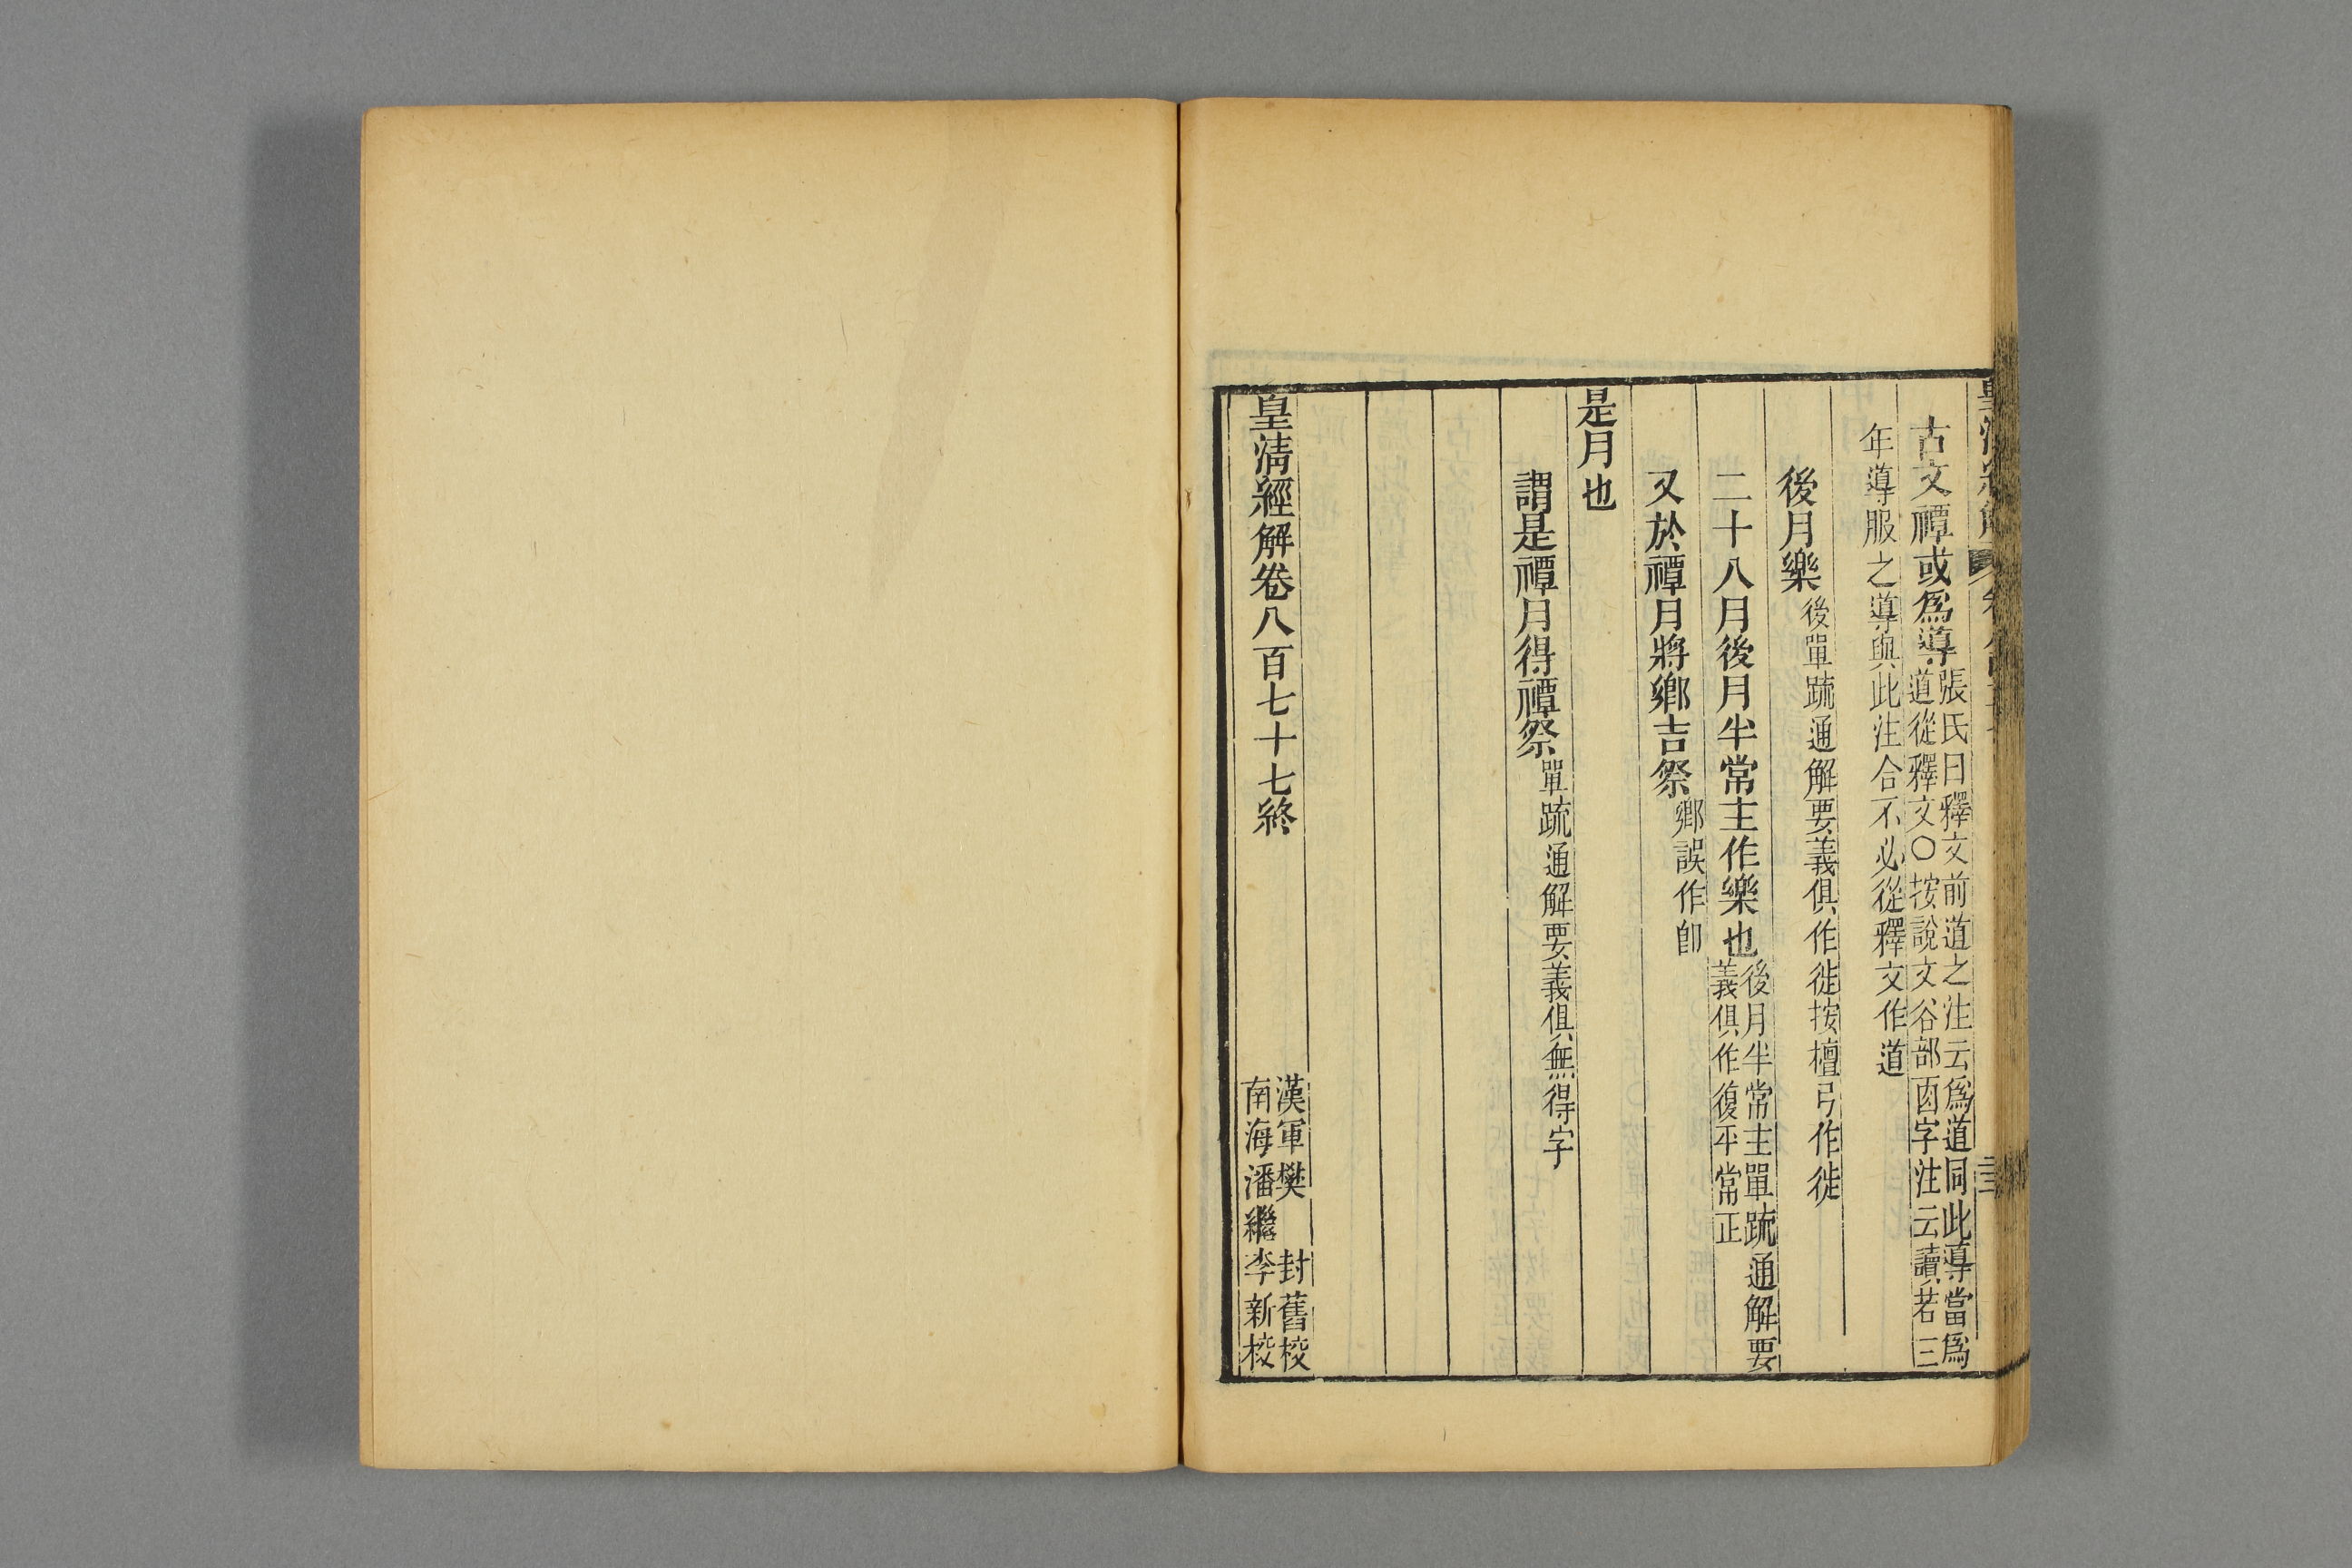 皇淸經解
古文禫或爲導張氏曰釋文前道之注云爲道同此導當爲道從釋文○按說文谷部㐁字注云讀若三
年導服之導與此注合不必從釋文作道
後月樂後單疏通解要義俱作徙按檀弓作徙
二十八月後月半常主作樂也後月半常主單疏通解要義俱作復平常正
又於禫月將鄉吉祭鄉誤作卽
是月也
謂是禫月得禫祭單疏通解要義俱無得字
皇淸經解卷八百七十七終
漢軍樊封舊校
南海潘繼李新校